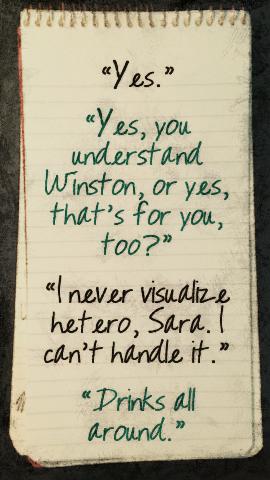 “Yes.”
“Yes, you
understand
Winston, or yes,
that’s for you,
too?”
“I never visualize
hetero, Sara. I
can’t handle it.”
“Drinks all
around.”